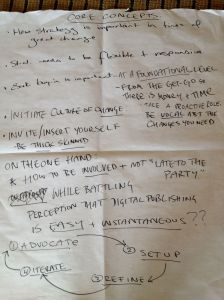 CORE CONCEPTS
• How strategy is important in times of great change
• Strat. needs to be flexible + responsive
• Get buy-in is important – AT A FOUNDATIONAL LEVEL
– FROM THE GET-GO SO THERE IS MONEY + TIME
• INITIATE CULTURE OF CHANGE
TAKE A PROACTIVE ROLE.
• INVITE/INSERT YOURSELF
BE VOCAL ABT THE CHANGES YOU NEED
- BE THICK SKINNED
ON THE ONE HAND
& HOW TO BE INVOLVED + NOT "LATE TO THE PARTY"
WHILE BATTLING
PERCEPTION THAT DIGITAL PUBLISHING
IS EASY + INSTANTANEOUS??
① ADVOCATE
② SETUP
④ ITERATE
③ REFINE